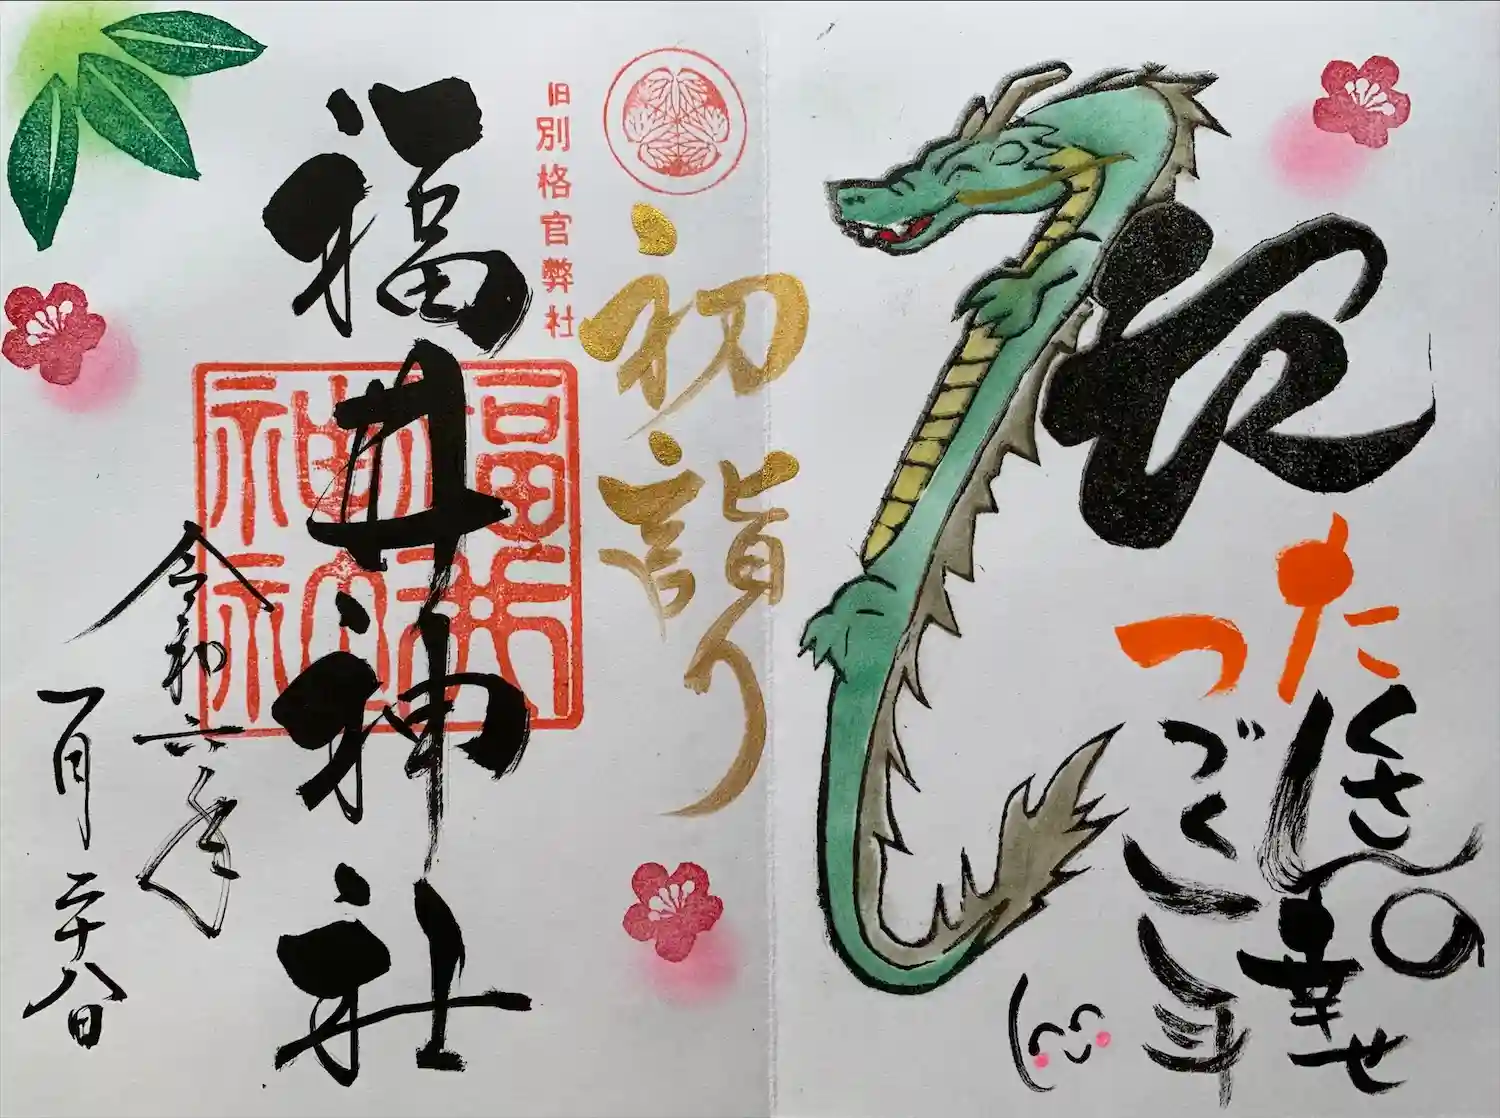 辰
たくさんの幸せ
つづく一年
初詣り
旧別格官弊社
福井神社
令和六年
一月二十八日